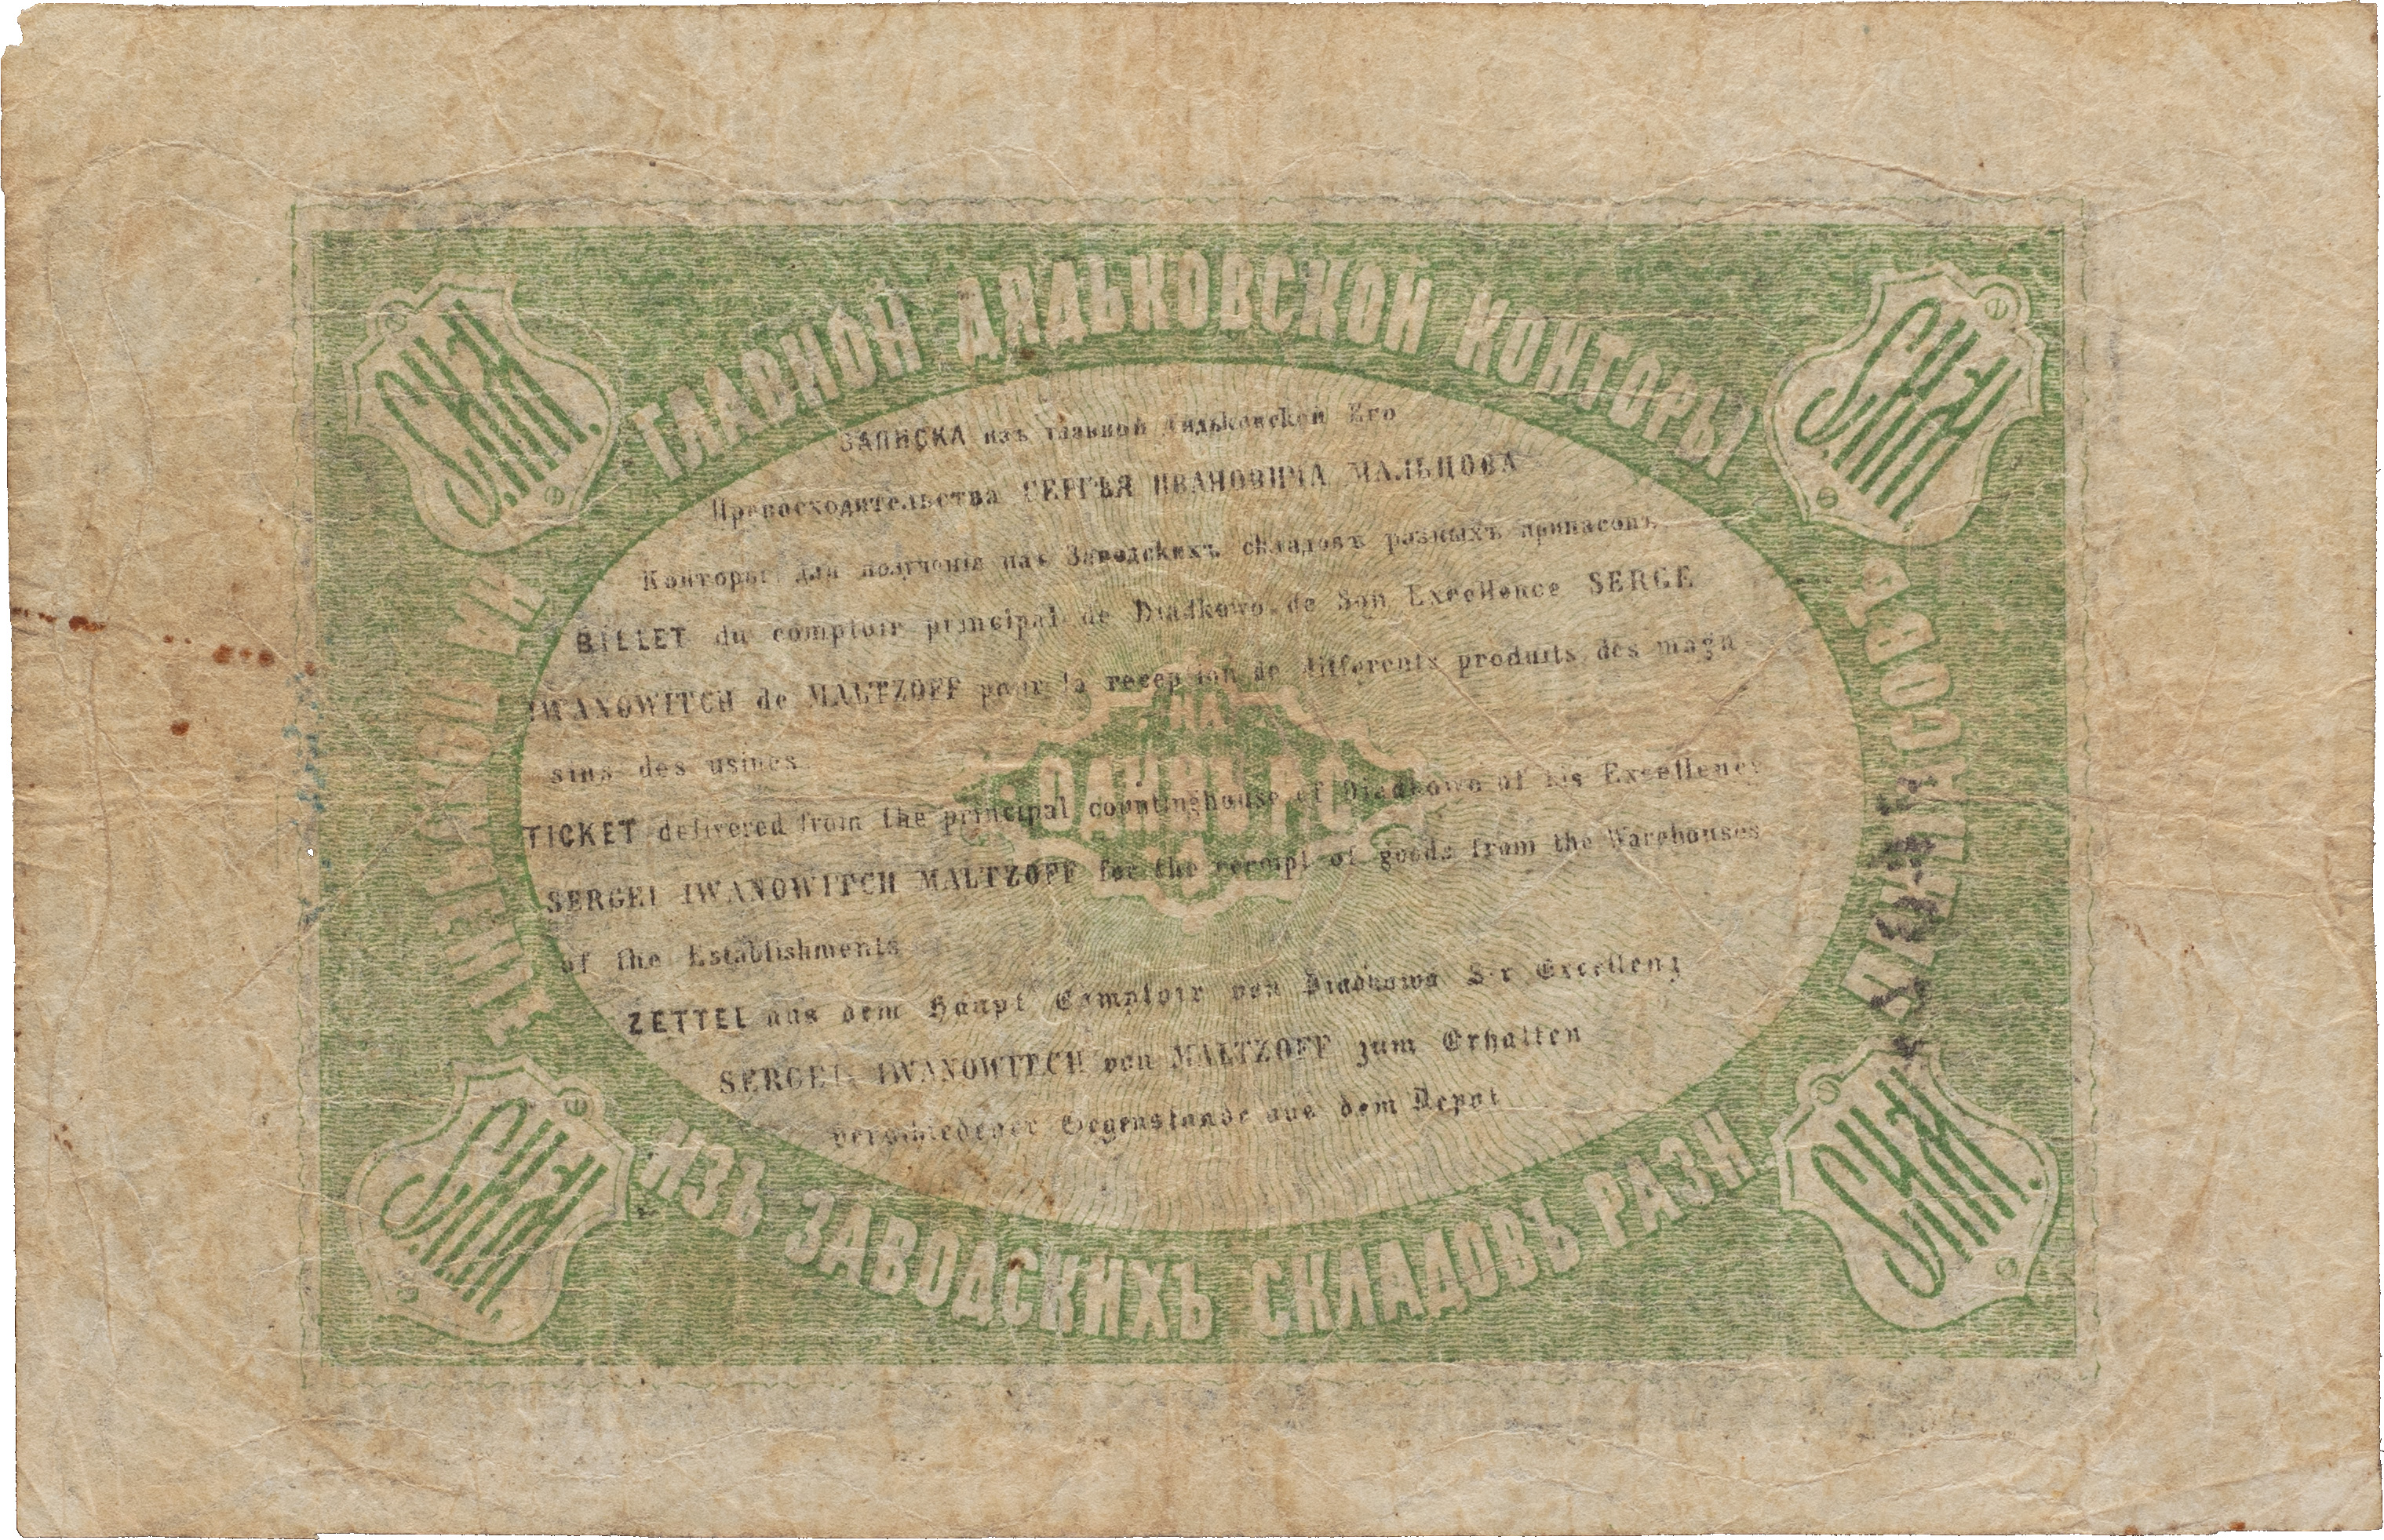 ГЛАВНОЙ ДЯДЬКОВСКОЙ КОНТОРЫ
ЗАПИСКА изъ главной Дядьковской Его
Превосходительства СЕРГѢЯ ИВАНОВИЧА МАЛЬЦОВА
Конторы для полученія изъ Заводскихъ складовъ разныхъ припасовъ
BILLET du comptoir principal de Diadkowo de Son Excellence SERGE
IWANOWITCH de MALTZOFF pour la reception de differents produits des maga
sins des usines
НА
ОДИНЪ
TICKET delivered from the principal countinghouse of Diadkowo of his Excellency
SERGEI IWANOWITCH MALTZOFF for the receipt of goods from the Warehouses
of the Establishments
ZETTEL aus dem Haupt Comptoir von Diadkowo S-r Excellenz
SERGEI IWANOWITCH von MALTZOFF zum Erhalten
verschiedener Gegenstande aus dem Depot
ИЗЪ ЗАВОДСКИХЪ СКЛАДОВЪ РАЗН